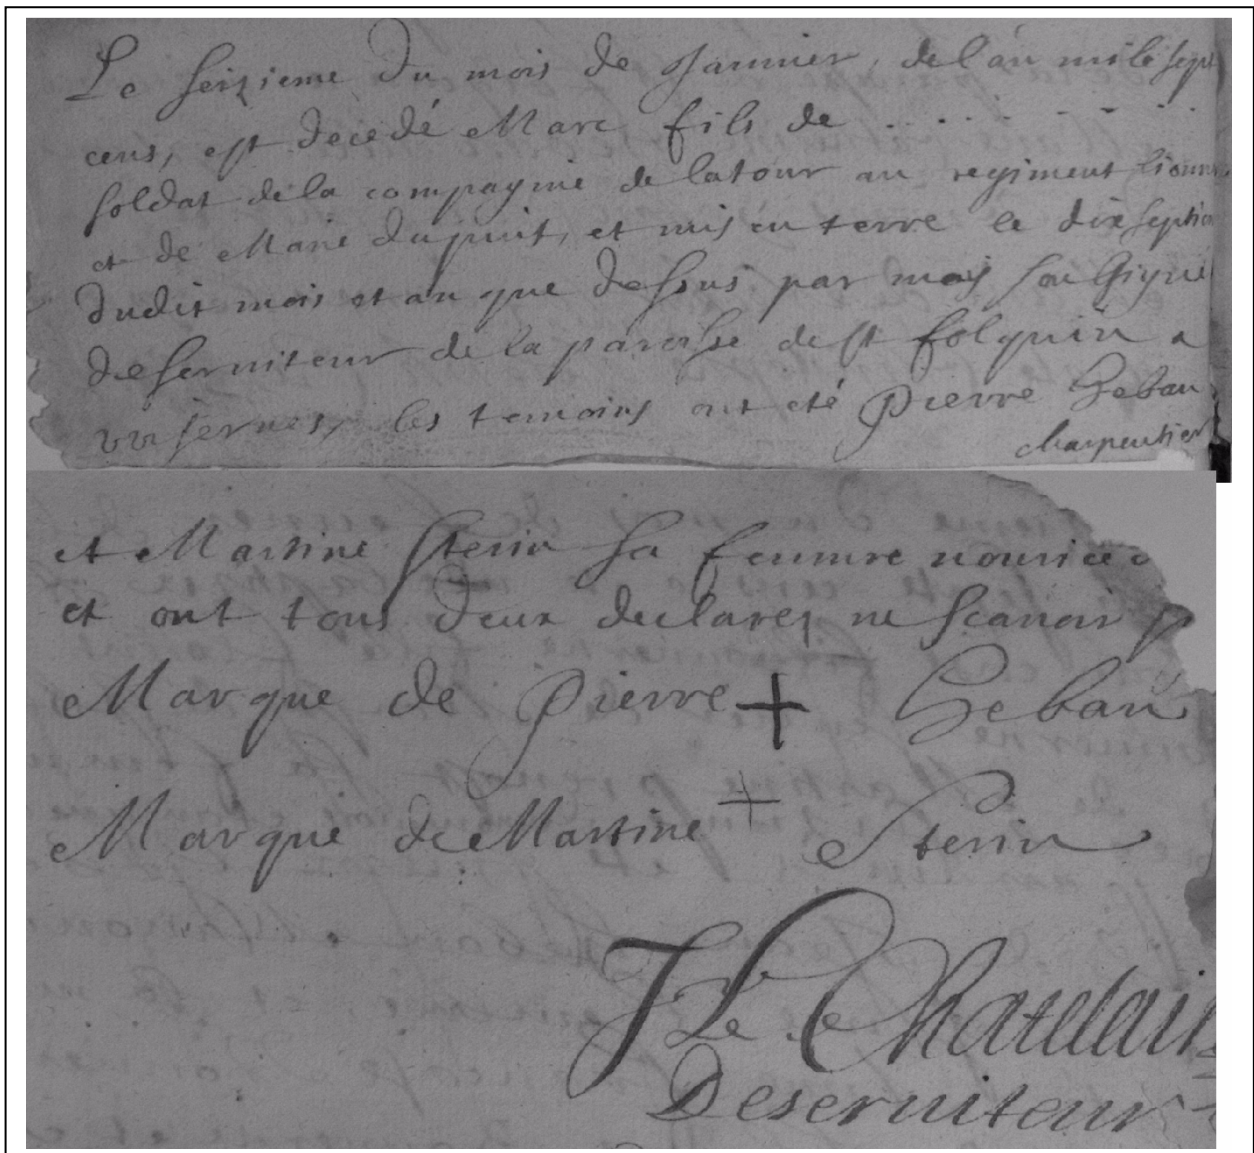 Le seizieme du mois de Janvier, de l'an mile sept
cens, est decedé Marc fils de . . . . . . . . .
soldat de la compagnie de latour au regiment
et de Marie dupuit, et mis en terre le dix septie
dudit mois et an que dessus par moy soussigné
deserviteur de la paroisse de st folquin a
les temoins ont eté Pierre Heban
charpentier
et Martine Sterin sa femme nourice
et ont tous deux declarez ne scavoir
Marque de Pierre + Heban
Marque de Martine + Sterin
J Le Chatelain
Deserviteur